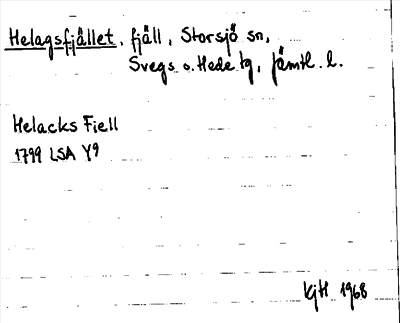 Helagsfjället, fjäll, Storsjö sn,
Svegs o. Hede tg, Jämtl. l.
Helacks Fiell
1799 LSA Y9
KjH 1968